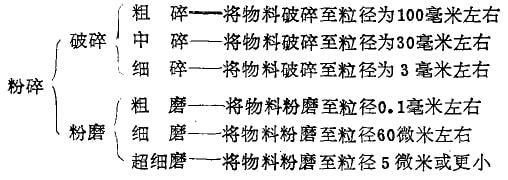 粗 碎——将物料破碎至粒径为100毫米左右
破碎 中 碎——将物料破碎至粒径为30毫米左右
细 碎——将物料破碎至粒径为 3 毫米左右
粉碎
粗 磨——将物料粉磨至粒径0.1毫米左右
粉磨 细 磨——将物料粉磨至粒径60微米左右
超细磨——将物料粉磨至粒径 5 微米或更小